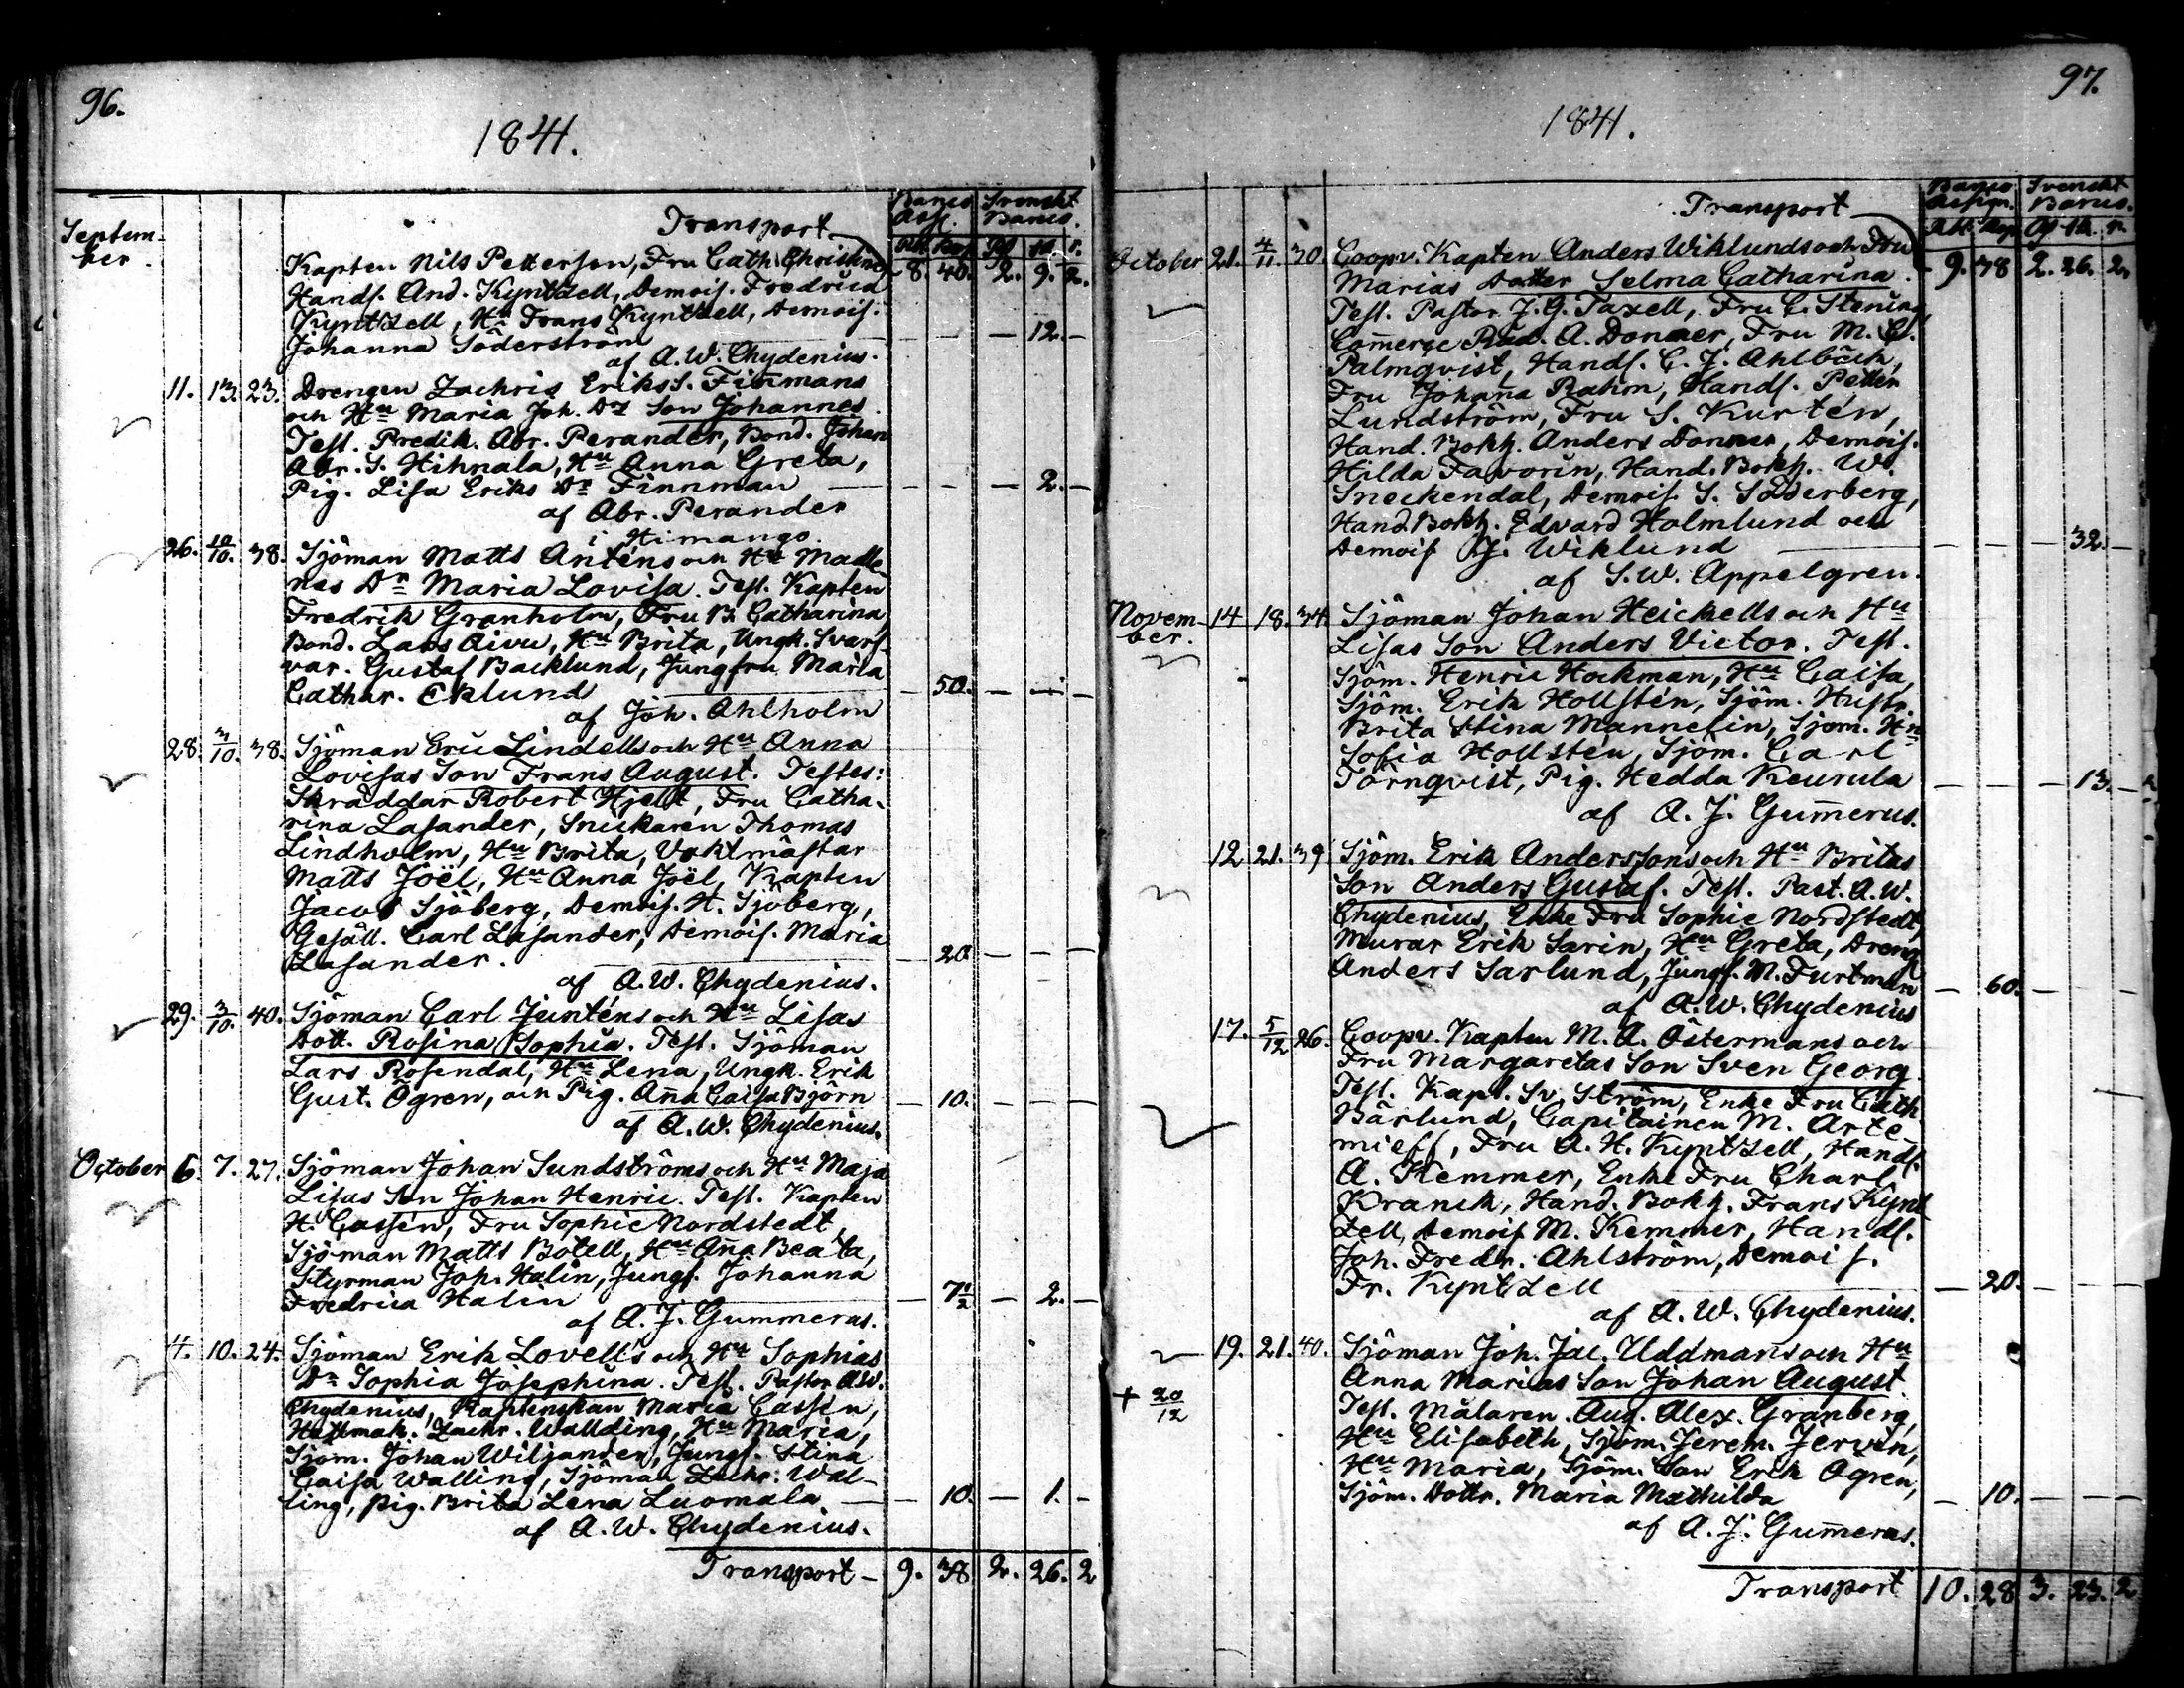 96.
1841.
Septem-
ber.
Banco Ass. Svenskt Banco.
Transport
Kapten Nils Petterson, Fru Cath. Christine, 8. 40. 2. 9. 2.
Handl. And. Kyntzell, Demois. Fredrica
Kyntzell, Hr Frans Kyntzell, Demois.
Johanna Söderström — — — 12. —
af A. W. Chydenius.
11. 13. 23. Drengen Zachris Eriks S. Finmans
och Hu Maria Joh. Dr Son Johannes.
Test. Predik. Abr. Perander, Bond. Johan
Abr. S. Hihnala, Hu Anna Greta,
Pig. Lisa Eriks Dr Finnman — — — 2. —
af Abr. Perander
i Himango.
26. 10/10. 38. Sjöman Matts Anténs och Hu Madle-
nas Dr Maria Lovisa. Test. Kapten
Fredrik Granholm, Fru B. Catharina,
Bond. Lars Aivu, Hu Brita, Ungk. Svarf-
var. Gustaf Backlund, Jungfru Maria
Cathar. Eklund — 50. — — —
af Joh. Ahlholm
28. 3/10. 38. Sjöman Eric Lindells och Hu Anna
Lovisas Son Frans August. Testes:
Skräddar Robert Hjelt, Fru Catha-
rina Lasander, Snickaren Thomas
Lindholm, Hu Brita, Vaktmästar
Matts Joël, Hu Anna Joël, Kapten
Jacob Sjöberg, Demois. H. Sjöberg,
Gesäll. Carl Lasander, Demois. Maria
Lasander. — 20. — — —
af A. W. Chydenius.
29. 3/10. 40. Sjöman Carl Junténs och Hu Lisas
Dott. Rosina Sophia. Test. Sjöman
Lars Rosendal, Hu Lena, Ungk. Erik
Gust. Ögren, och Pig. Ana Caisa Björn — 10. — — —
af A. W. Chydenius.
October 6. 7. 27. Sjöman Johan Sundströms och Hu Maja
Lisas Son Johan Henric. Test. Kapten
H. Cassén, Fru Sophie Nordstedt,
Sjöman Matts Botell, Hu Ana Beata,
Styrman Joh. Halin, Jungf. Johanna
Fredrica Halin — 7½ — 2. —
af A. J. Gummerus.
4. 10. 24. Sjöman Erik Lovell's och Hu Sophias
Dr Sophia Josephina. Test. Pastor A.W.
Chydenius, Kaptenskan Maria Cassén,
Hattmak. Zachr. Wallding, Hu Maria,
Sjöm. Johan Wiljander, Jungf. Stina
Caisa Walling, Sjöman Zachr. Wal-
ling, pig. Brita Lena Luomala. — 10. — 1. —
af A. W. Chydenius.
Transport — 9. 38 2. 26. 2
97.
1841.
Banco Assign. Svenskt Banco.
Transport
October 21. 4/11. 30. Coopv. Kapten Anders Wiklunds och Fru
Marias Dotter Selma Catharina. 9. 38 2. 26. 2.
Test. Pastor J. G. Taxell, Fru C. Stenius,
Comerce Råd. A. Donner, Fru M. C.
Palmqvist, Handl. C. J. Ahlbäck,
Fru Johana Rahm, Handl. Petter
Lundström, Fru S. Kurtén,
Hand. Bokh. Anders Donner, Demois.
Hilda Favorin, Hand. Bokh. W.
Sneckendal, Demois. S. Söderberg,
Hand. Bokh. Edvard Holmlund och
Demois J. Wiklund — — — 32. —
af S. W. Appelgren.
Novem-
ber. 14 18. 34. Sjöman Johan Heickells och Hu
Lisas Son Anders Victor. Test.
Sjöm. Henric Hockman, Hu Caisa,
Sjöm. Erik Hollstén, Sjöm. Hustr.
Brita Stina Mannelin, Sjöm. Hu
Sofia Hollstén, Sjöm. Carl
Törnqvist, Pig. Hedda Keurula — — — 13. —
af A. J. Gumerus.
12 21. 39 Sjöm. Erik Anderssons och Hu Britas
Son Anders Gustaf. Test. Past. A. W.
Chydenius, Enke Fru Sophie Nordstedt,
Murar Erik Sarin, Hu Greta, Dreng
Anders Sarlund, Jungf. M. Furtman — 60. — — —
af A. W. Chydenius
17. 5/12 26. Coopv. Kapten M. A. Östermans och
Fru Margaretas Son Sven Georg.
Test. Kapt. Sv. Ström, Enke Fru Cath.
Bärlund, Capitainen M. Arte-
mieff, Fru A. H. Kyntzell, Handl.
A. Kemmer, Enke Fru Charl.
Kranck, Hand. Bokh. Frans Kynt-
zell, Demois M. Kemmer, Handl.
Joh. Fredr. Ahlström, Demois.
Fr. Kyntzell — 20. — — —
af A. W. Chydenius.
19. 21. 40. Sjöman Joh. Jac. Uddmans och Hu
+ 20/12 Anna Marias Son Johan August.
Test. Målaren. Aug. Alex. Granberg,
Hu Elisabeth, Sjöm. Jerem. Jervin,
Hu Maria, Sjöm. Son Erik Ögren,
Sjöm. Dottr. Maria Mathilda — 10. — — —
af A. J. Gumerus.
Transport 10. 28 3. 23. 2